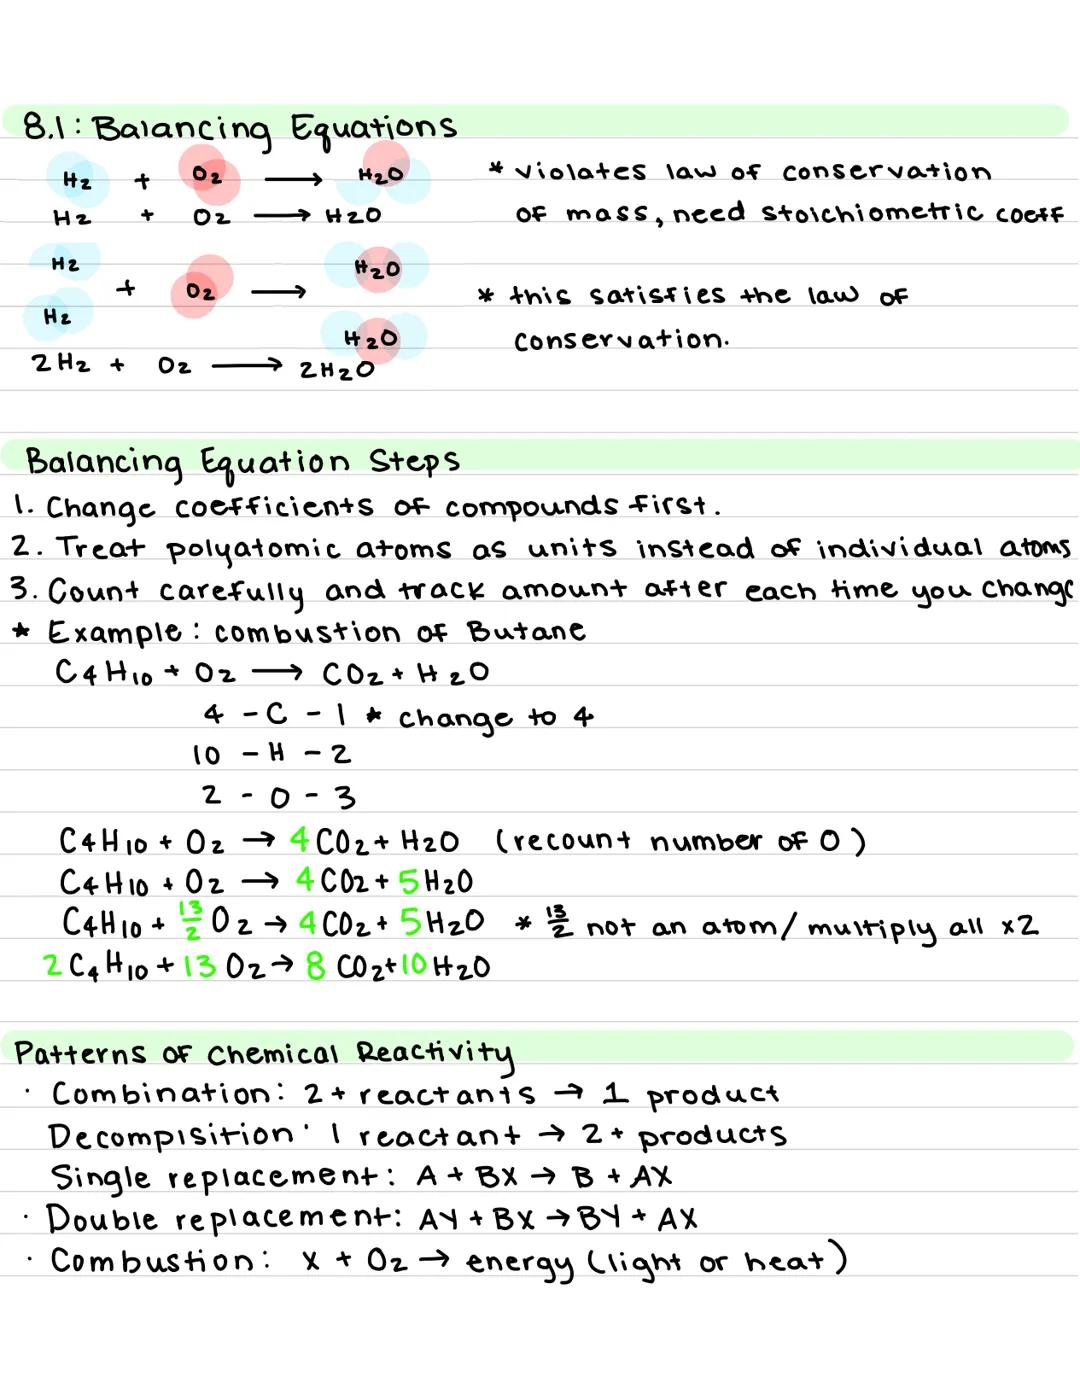 8.1: Balancing Equations
H2 + O2 → H2O * violates law of conservation
H2 + O2 → H2O of mass, need stoichiometric coeff
H2 H2O
+ O2 → * this satisfies the law of
H2
H2O conservation.
2H2 + O2 → 2H2O
Balancing Equation Steps
1. Change coefficients of compounds first.
2. Treat polyatomic atoms as units instead of individual atoms
3. Count carefully and track amount after each time you change
* Example: combustion of Butane
C4H10 + O2 → CO2 + H2O
4 - C - 1 * change to 4
10 - H - 2
2 - O - 3
C4H10 + O2 → 4CO2 + H2O (recount number of O)
C4H10 + O2 → 4CO2 + 5H2O
C4H10 + 13/2 O2 → 4CO2 + 5H2O * 13/2 not an atom/multiply all x2
2C4H10 + 13O2 → 8CO2 + 10H2O
Patterns of Chemical Reactivity
· Combination: 2+ reactants → 1 product
Decompisition· 1 reactant → 2+ products
Single replacement: A + BX → B + AX
· Double replacement: AY + BX → BY + AX
· Combustion: X + O2 → energy (light or heat)